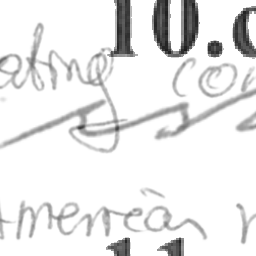 10.
ating co
American
11